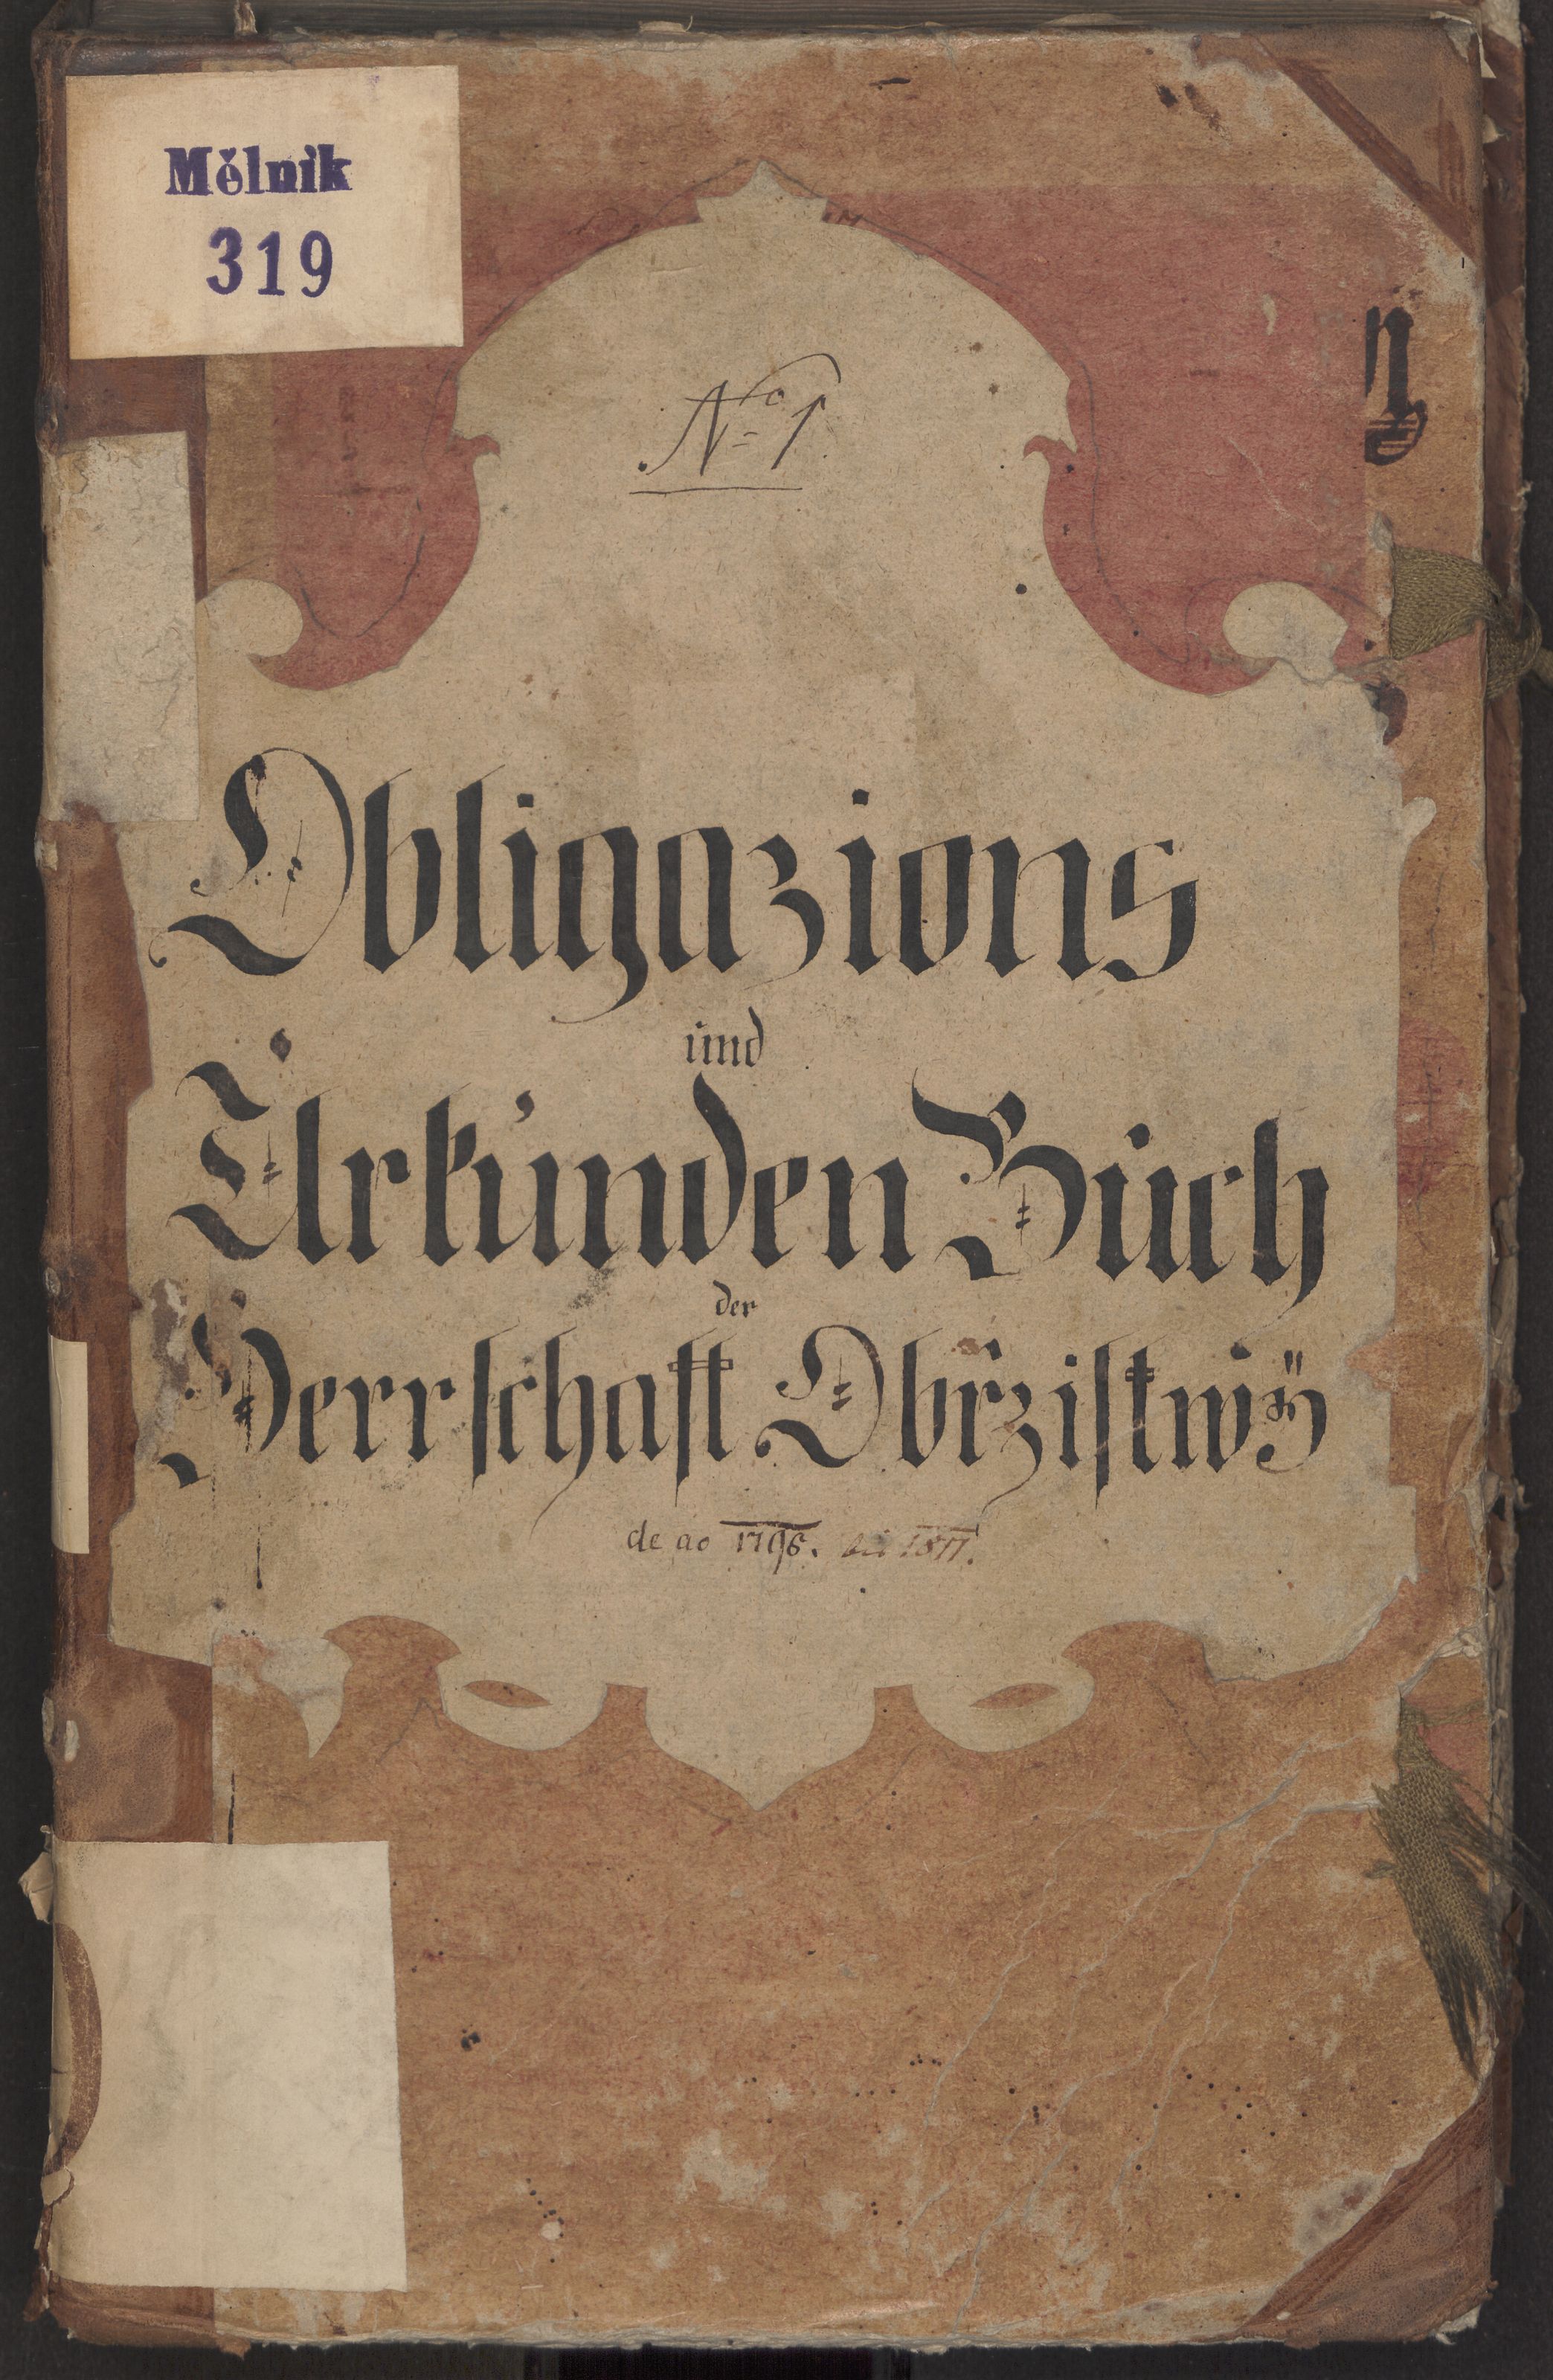 Mělnik
319
No 1
Obligazions
und
Urkunden Buch
der
Herrschaft Obrzistwÿ
de ao 1796. bis 1811.